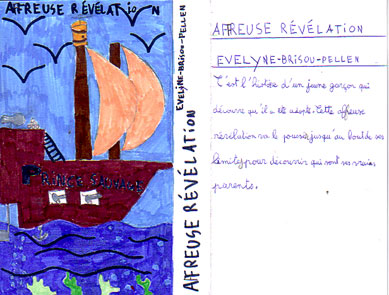 AFFREUSE RÉVÉLATION
AFFREUSE RÉVÉLATION
EVELYNE-BRISOU-PELLEN
AFFREUSE RÉVÉLATION
EVELYNE-BRISOU-PELLEN
C'est l'histoire d'un jeune garçon qui
découvre qu'il a été adopté. Cette affreuse
révélation va le pousser jusqu'au bout de ses
limites pour découvrir qui sont ses vrais
parents.